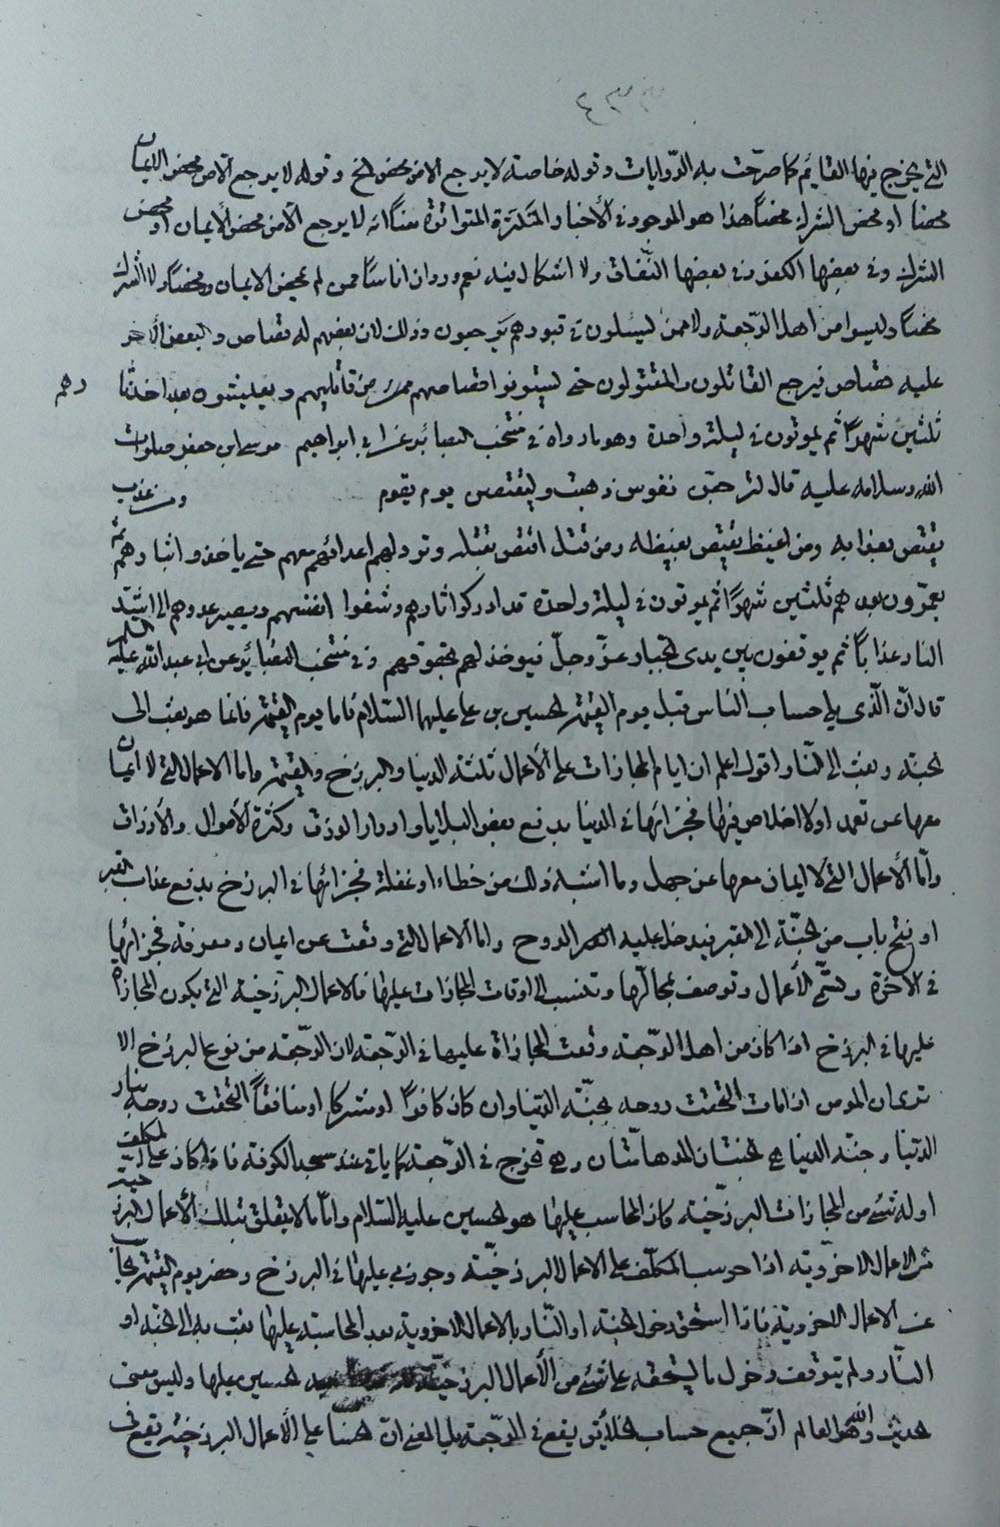 ٤٣٣
التي يخرج فيها القايم كما صرحت به الروايات وقوله خاصة لا يرجع الا من محض الخ وقوله لا يرجع الا من محض الايمان
محضا او محض الشرك محضا هذا هو الموجود في الأخبار المتكررة المتواترة معنا انه لا يرجع الا من محض الأيمان او محض
الشرك وفي بعضها الكفر وفي بعضها النفاق ولا اشكال فيه نعم ورد ان اناسا ممن لم يمحض الايمان محضا ولا الشرك
محضا وليسوا من اهل الرجعة ولا ممن يسئلون في قبورهم يرجعون وذلك لان بعضهم له قصاص والبعض الأخر
عليه قصاص فيرجع القاتلون والمقتولون حتى يستوفوا قصاصهم من قاتليهم ويعيشون بعد اخذ ثارهم
ثلثين شهرا ثم يموتون في ليلة واحدة وهو ما رواه في منتخب البصائر عن ابي ابراهيم موسى ابن جعفر صلوات
الله وسلامه عليه قال لترجعن نفوس ذهبت وليقتصن يوم يقوم ومن عذب
يقتص بعذابه ومن اغيظ يقتص بغيظه ومن قتل اقتص بقتله وترد لهم اعدائهم معهم حتى ياخذوا بثارهم ثم
يعمرون بعدهم ثلثين شهرا ثم يموتون في ليلة واحدة قد ادركوا ثارهم وشفوا انفسهم ويصير عدوهم الى اشد
النار عذابا ثم يوقفون بين يدي الجبار عز وجل فيوخذ لهم بحقوقهم وفي منتخب البصائر عن ابي عبد الله عليه السلم
قال ان الذي يلي حساب الناس قبل يوم القيمة الحسين بن علي عليهما السلام فاما يوم القيمة فانما هو بعث الى
الجنة وبعث الى النار اقول اعلم ان ايام المجازات على الأعمال ثلثة الدنيا والبرزخ والقيمة واما الاعمال التي لا ايمان
معها عن تعمد او لا اخلاص فيها فجزائها في الدنيا بدفع بعض البلايا وادرار الرزق وكثرة الأموال والأرزاق
واما الأعمال التي لا ايمان معها عن جهل وما اشبه ذلك من خطاء او غفلة فجزائها في البرزخ بدفع عذاب القبر
او فتح باب من الجنة الى القبر فيدخل عليه الروح واما الاعمال التي وقعت عن ايمان ومعرفة فجزائها
في الآخرة وتسمى الأعمال وتوصف بمحالها وتنسب الى اوقات المجازات عليها فالاعمال البرزخية التي يكون المجازاة
عليها في البرزخ اذا كان من اهل الرجعة وقعت المجازاة عليها في الرجعة لان الرجعة من نوع البرزخ الا
ترى ان المومن اذا مات التحقت روحه بجنة الدنيا وان كان كافرا او مشركا او منافقا التحقت روحه بنار
الدنيا وجنة الدنيا هي الجنتان المدهامتان وهي تخرج في الرجعة كما ياتي عند مسجد الكوفة فاذا كان على المكلف
او له شئ من المجازات البرزخية كان المحاسب عليها هو الحسين عليه السلام واما ما لا يتعلق بتلك الأعمال البرزخية
من الاعمال الاخروية اذا حوسب المكلف على الاعمال البرزخية وجوزي عليها في البرزخ وحضر يوم القيمة
عن الاعمال الاخروية فاذا استحق دخول الجنة او النار بالاعمال الاخروية بعد المحاسبة عليها بعث به الى الجنة او
النار ولم يتوقف دخول ما يستحقه على شئ من الأعمال البرزخية الحسين عليها وليس معنى
الحديث والله العالم ان جميع حساب الخلائق يقع في الرجعة بل المعنى ان الحساب على الأعمال البرزخية يقع في